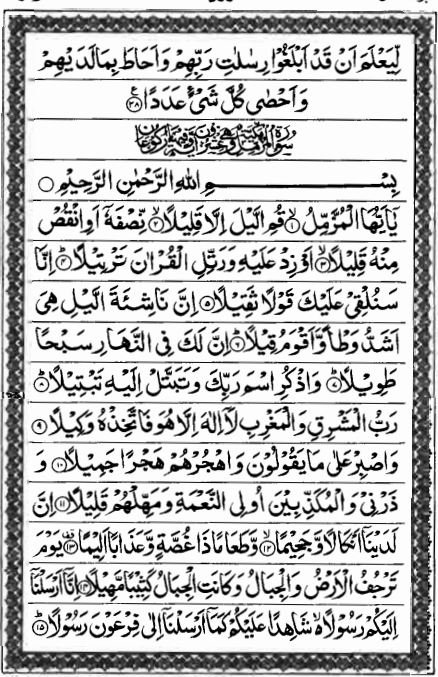 لِّيَعْلَمَ اَنْ قَدْ اَبْلَغُوْا رِسٰلٰتِ رَبِّهِمْ وَاَحَاطَ بِمَا لَدَيْهِمْ
وَاَحْصٰى كُلَّ شَىْءٍ عَدَدًا ﴿۲۸﴾
بِسْمِ اللّٰهِ الرَّحْمٰنِ الرَّحِيْمِ
يٰۤاَيُّهَا الْمُزَّمِّلُ ﴿۱﴾ قُمِ الَّيْلَ اِلَّا قَلِيْلًا ﴿۲﴾ نِّصْفَهٗۤ اَوِ انْقُصْ
مِنْهُ قَلِيْلًا ﴿۳﴾ اَوْ زِدْ عَلَيْهِ وَرَتِّلِ الْقُرْاٰنَ تَرْتِيْلًا ﴿۴﴾ اِنَّا
سَنُلْقِىْ عَلَيْكَ قَوْلًا ثَقِيْلًا ﴿۵﴾ اِنَّ نَاشِئَةَ الَّيْلِ هِىَ
اَشَدُّ وَطْاً وَّاَقْوَمُ قِيْلًا ﴿۶﴾ اِنَّ لَكَ فِى النَّهَارِ سَبْحًا
طَوِيْلًا ﴿۷﴾ وَاذْكُرِ اسْمَ رَبِّكَ وَتَبَتَّلْ اِلَيْهِ تَبْتِيْلًا ﴿۸﴾
رَبُّ الْمَشْرِقِ وَالْمَغْرِبِ لَاۤ اِلٰهَ اِلَّا هُوَ فَاتَّخِذْهُ وَكِيْلًا ﴿۹﴾
وَاصْبِرْ عَلٰى مَا يَقُوْلُوْنَ وَاهْجُرْهُمْ هَجْرًا جَمِيْلًا ﴿۱۰﴾ وَ
ذَرْنِىْ وَالْمُكَذِّبِيْنَ اُولِى النَّعْمَةِ وَمَهِّلْهُمْ قَلِيْلًا ﴿۱۱﴾ اِنَّ
لَدَيْنَاۤ اَنْكَالًا وَّجَحِيْمًا ﴿۱۲﴾ وَّطَعَامًا ذَا غُصَّةٍ وَّعَذَابًا اَلِيْمًا ﴿۱۳﴾ يَوْمَ
تَرْجُفُ الْاَرْضُ وَالْجِبَالُ وَكَانَتِ الْجِبَالُ كَثِيْبًا مَّهِيْلًا ﴿۱۴﴾ اِنَّاۤ اَرْسَلْنَاۤ
اِلَيْكُمْ رَسُوْلًا شَاهِدًا عَلَيْكُمْ كَمَاۤ اَرْسَلْنَاۤ اِلٰى فِرْعَوْنَ رَسُوْلًا ﴿۱۵﴾